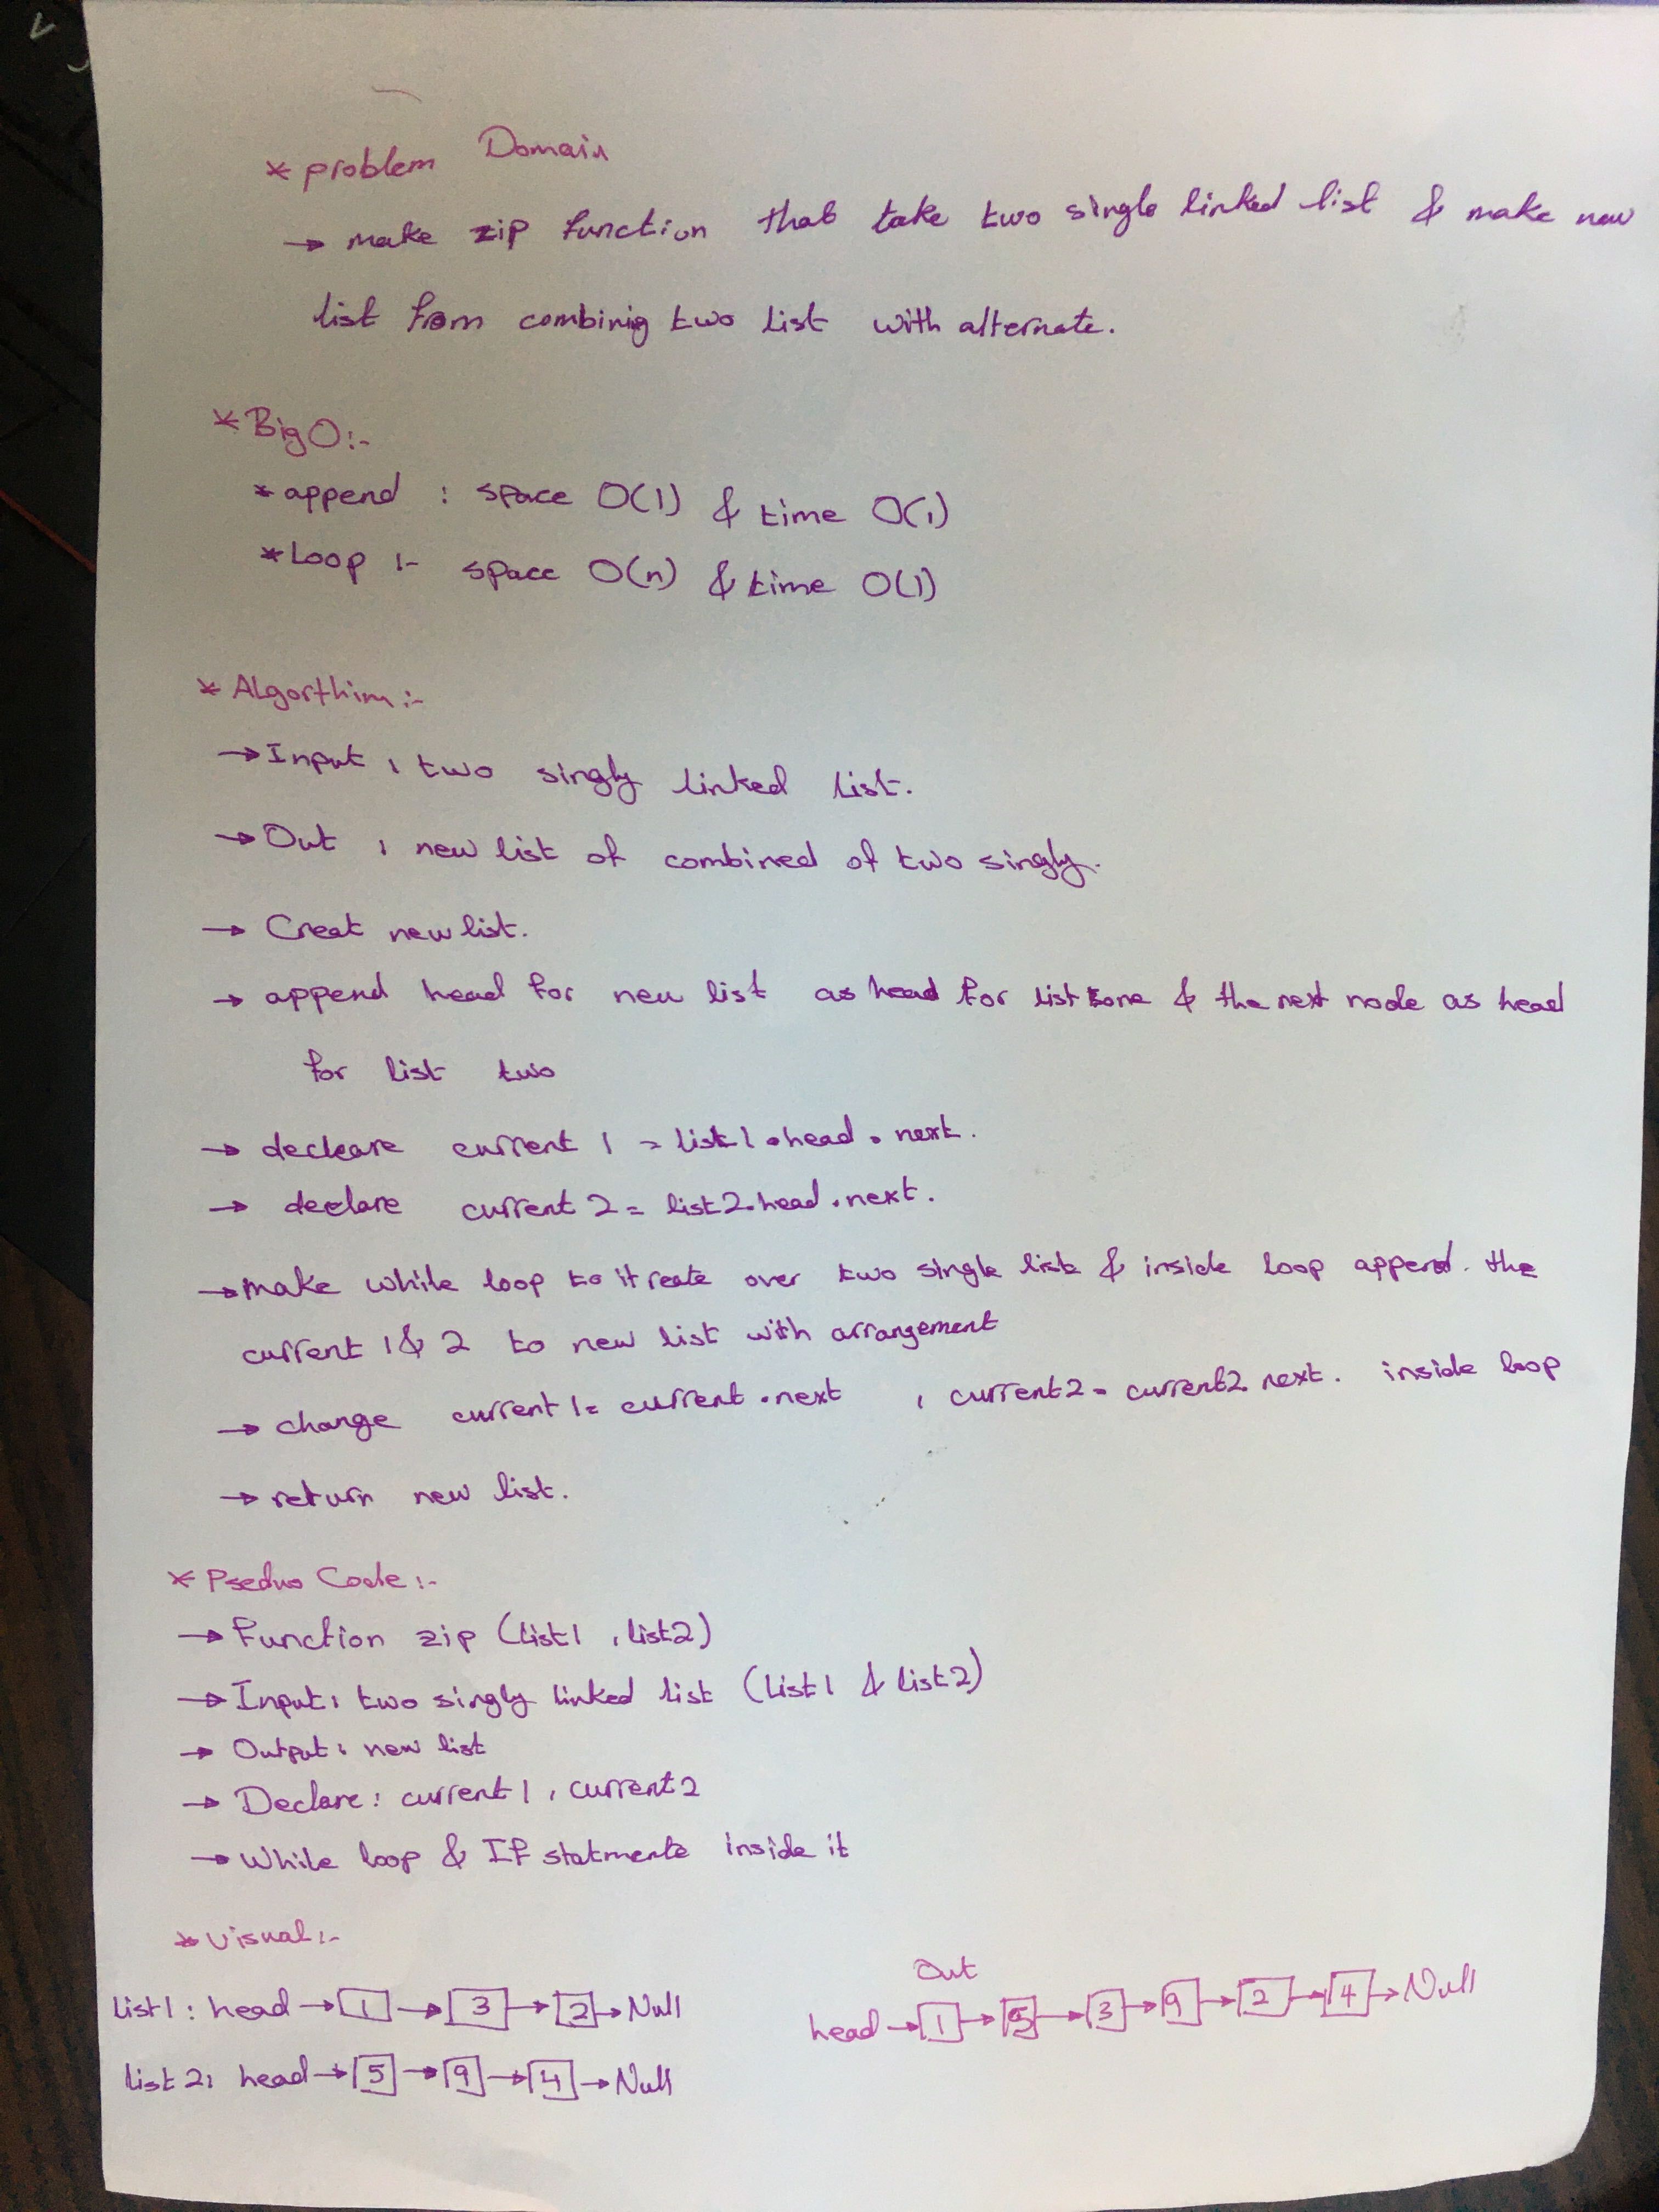 * problem Domain
→ make zip function that take two single linked list & make new
list from combinig two list with alternate.
* Big O:-
* append : space O(1) & time O(1)
* Loop :- space O(n) & time O(1)
* Algorthim :-
→ Input : two singly linked list.
→ Out : new list of combined of two singly.
→ Creat new list.
→ append head for new list as head for list one & the next node as head
for list two
→ decleare current 1 = list 1 . head . next .
→ declare current 2 = list2.head.next.
→ make while loop to itreate over two single list & inside loop append the
current 1 & 2 to new list with arrangement
→ change current 1 = current .next , current2 = current2.next. inside loop
→ return new list.
* Pseduo Code :-
→ Function zip (list1 , list2)
→ Input : two singly linked list (list1 & list2)
→ Output : new list
→ Declare : current 1 , current 2
→ While loop & If statmente inside it
* Visual :-
Out
list1 : head → 1 → 3 → 2 → Null
head → 1 → 5 → 3 → 9 → 2 → 4 → Null
list 2: head → 5 → 9 → 4 → Null